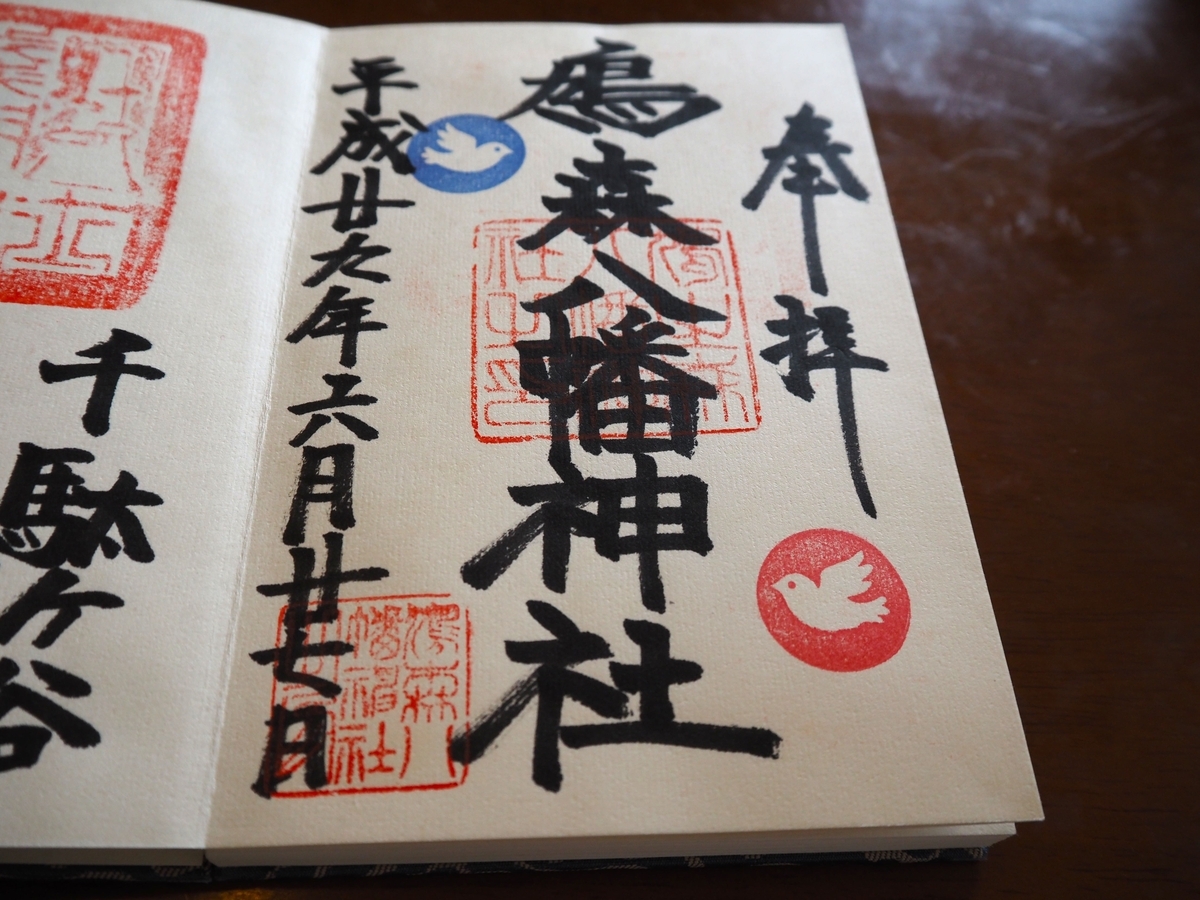 奉拝
鳩森八幡神社
平成廿九年六月廿七日
鳩森八
幡神社
千駄ヶ谷